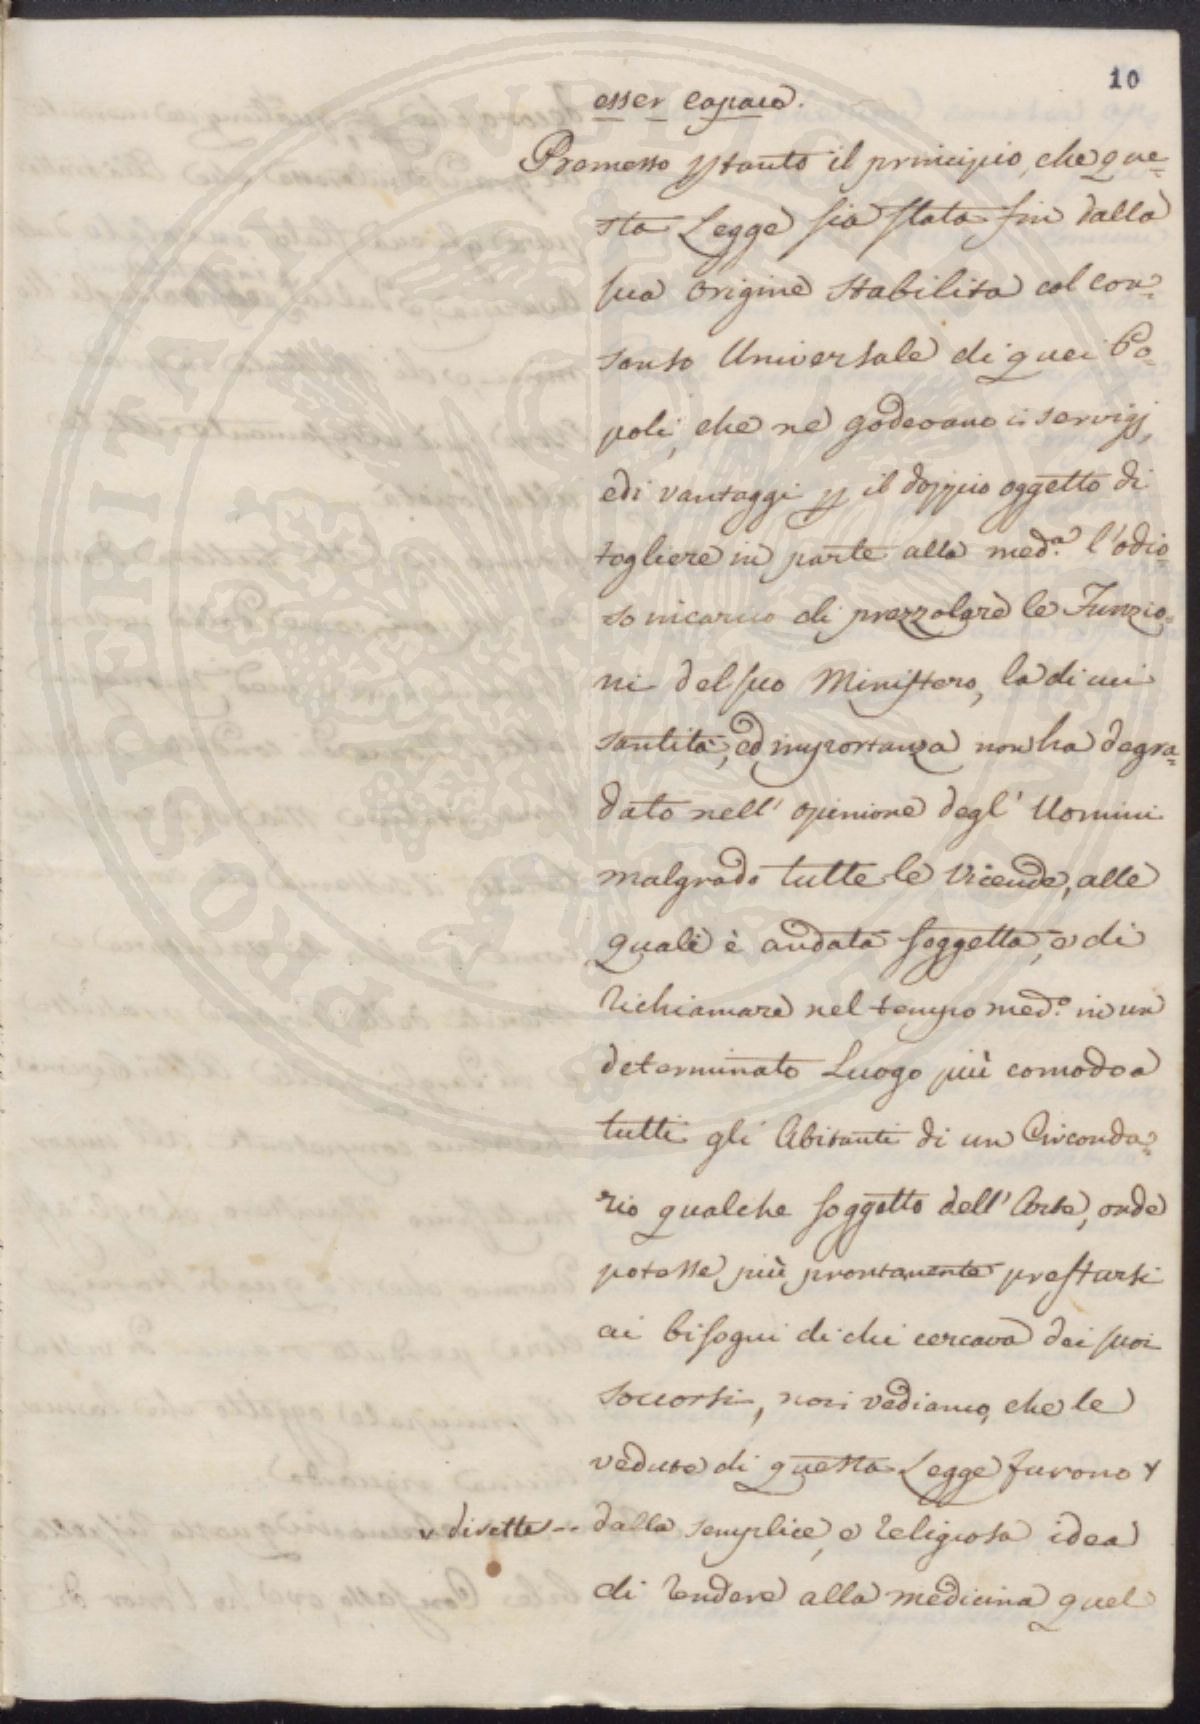 10
esser capace.
Premesso pptanto il principio, che que=
sta Legge sia stata fin dalla
sua origine stabilita col con=
senso Universale di quei Po=
poli, che ne godevano i servigj,
edi vantaggi pp il doppio oggetto di
togliere in parte alla med.a l'odio=
so incarico di prezzolare le Funzio=
ni del suo Ministero, la di cui
santità, ed importanza non ha degra=
dato nell' opinione degl' Uomini
malgrado tutte le vicende, alle
quali è andata soggetta, e di
richiamare nel tempo med.o in un
determinato Luogo più comodo a
tutti gli Abitanti di un Circonda=
rio qualche soggetto dell' Arte, onde
potesse più prontamente prestarsi
ai bisogni di chi cercava dei suoi
soccorsi, noi vediamo, che le
vedute di questa Legge furono v
v dirette -- dalla semplice, e religiosa idea
di rendere alla medicina quel
PROSPERITATI PVBLICAE